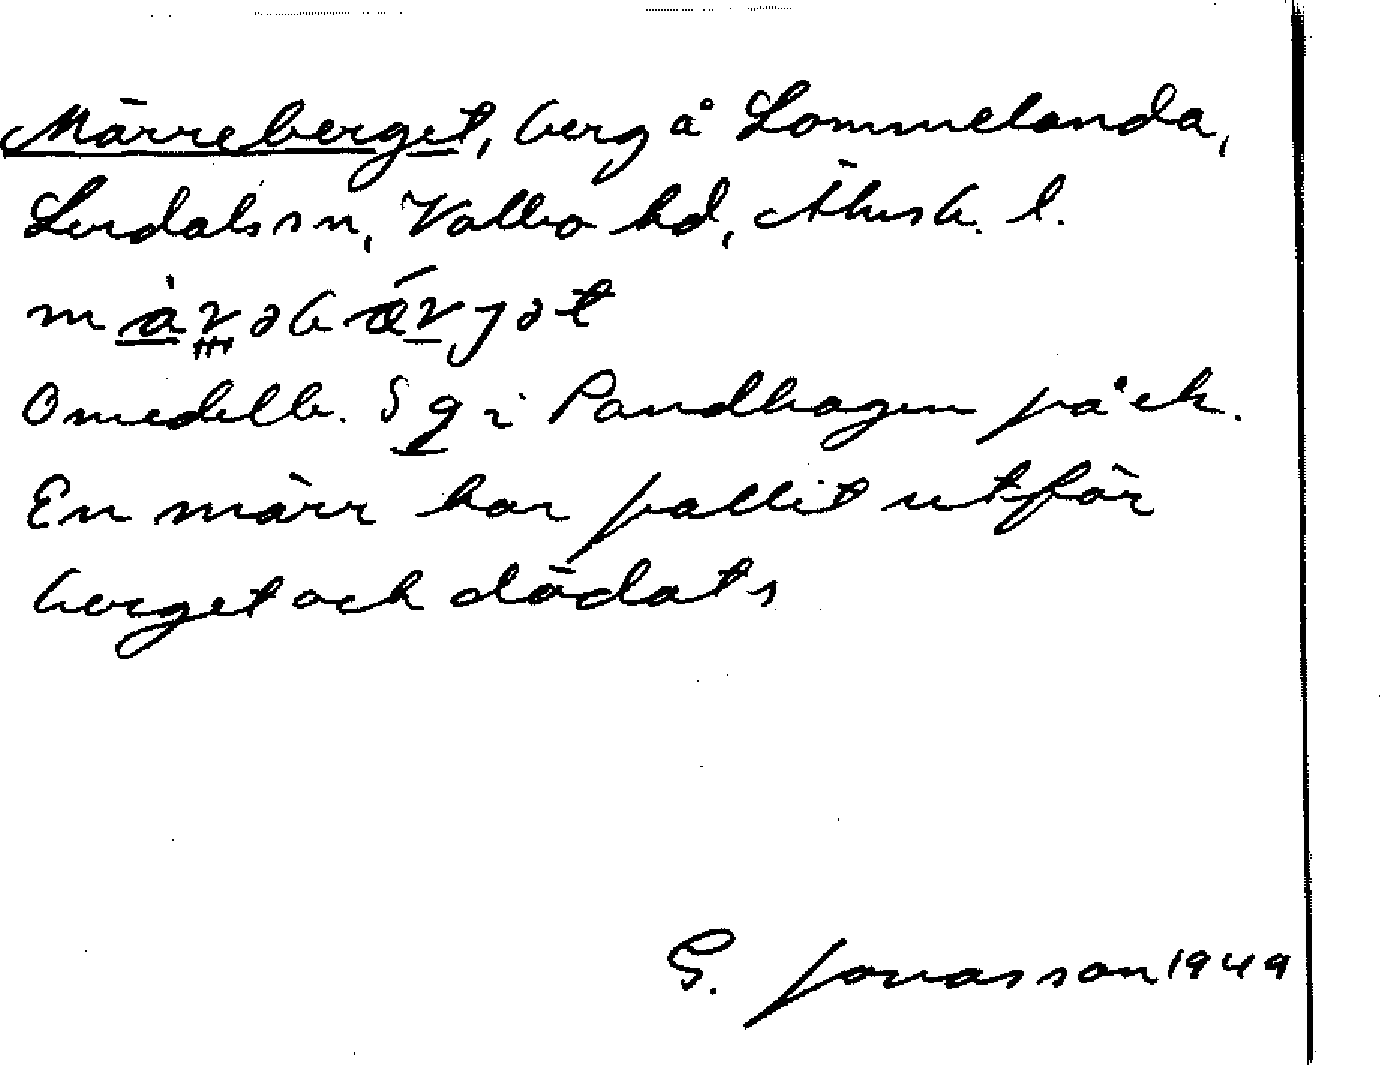 Märreberget, berg å Lommelanda,
Lerdals sn, Valbo hd, Älvsb. l.
Omedelb. S g i Pandhagen på ek.
En märr har fallit utför
berget och dödats
G. Jonasson 1949